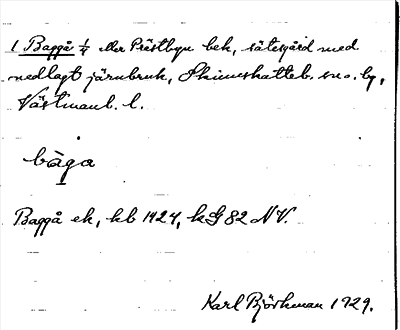 1 Baggå 1/4 eller Prästbyn bek, sätegård med
nedlagt järnbruk, Skinnskatteb. sn o. bg,
Västmanl. l.
båga
Baggå ek, kb 1424, kG 82 NV.
Karl Björkman 1929.